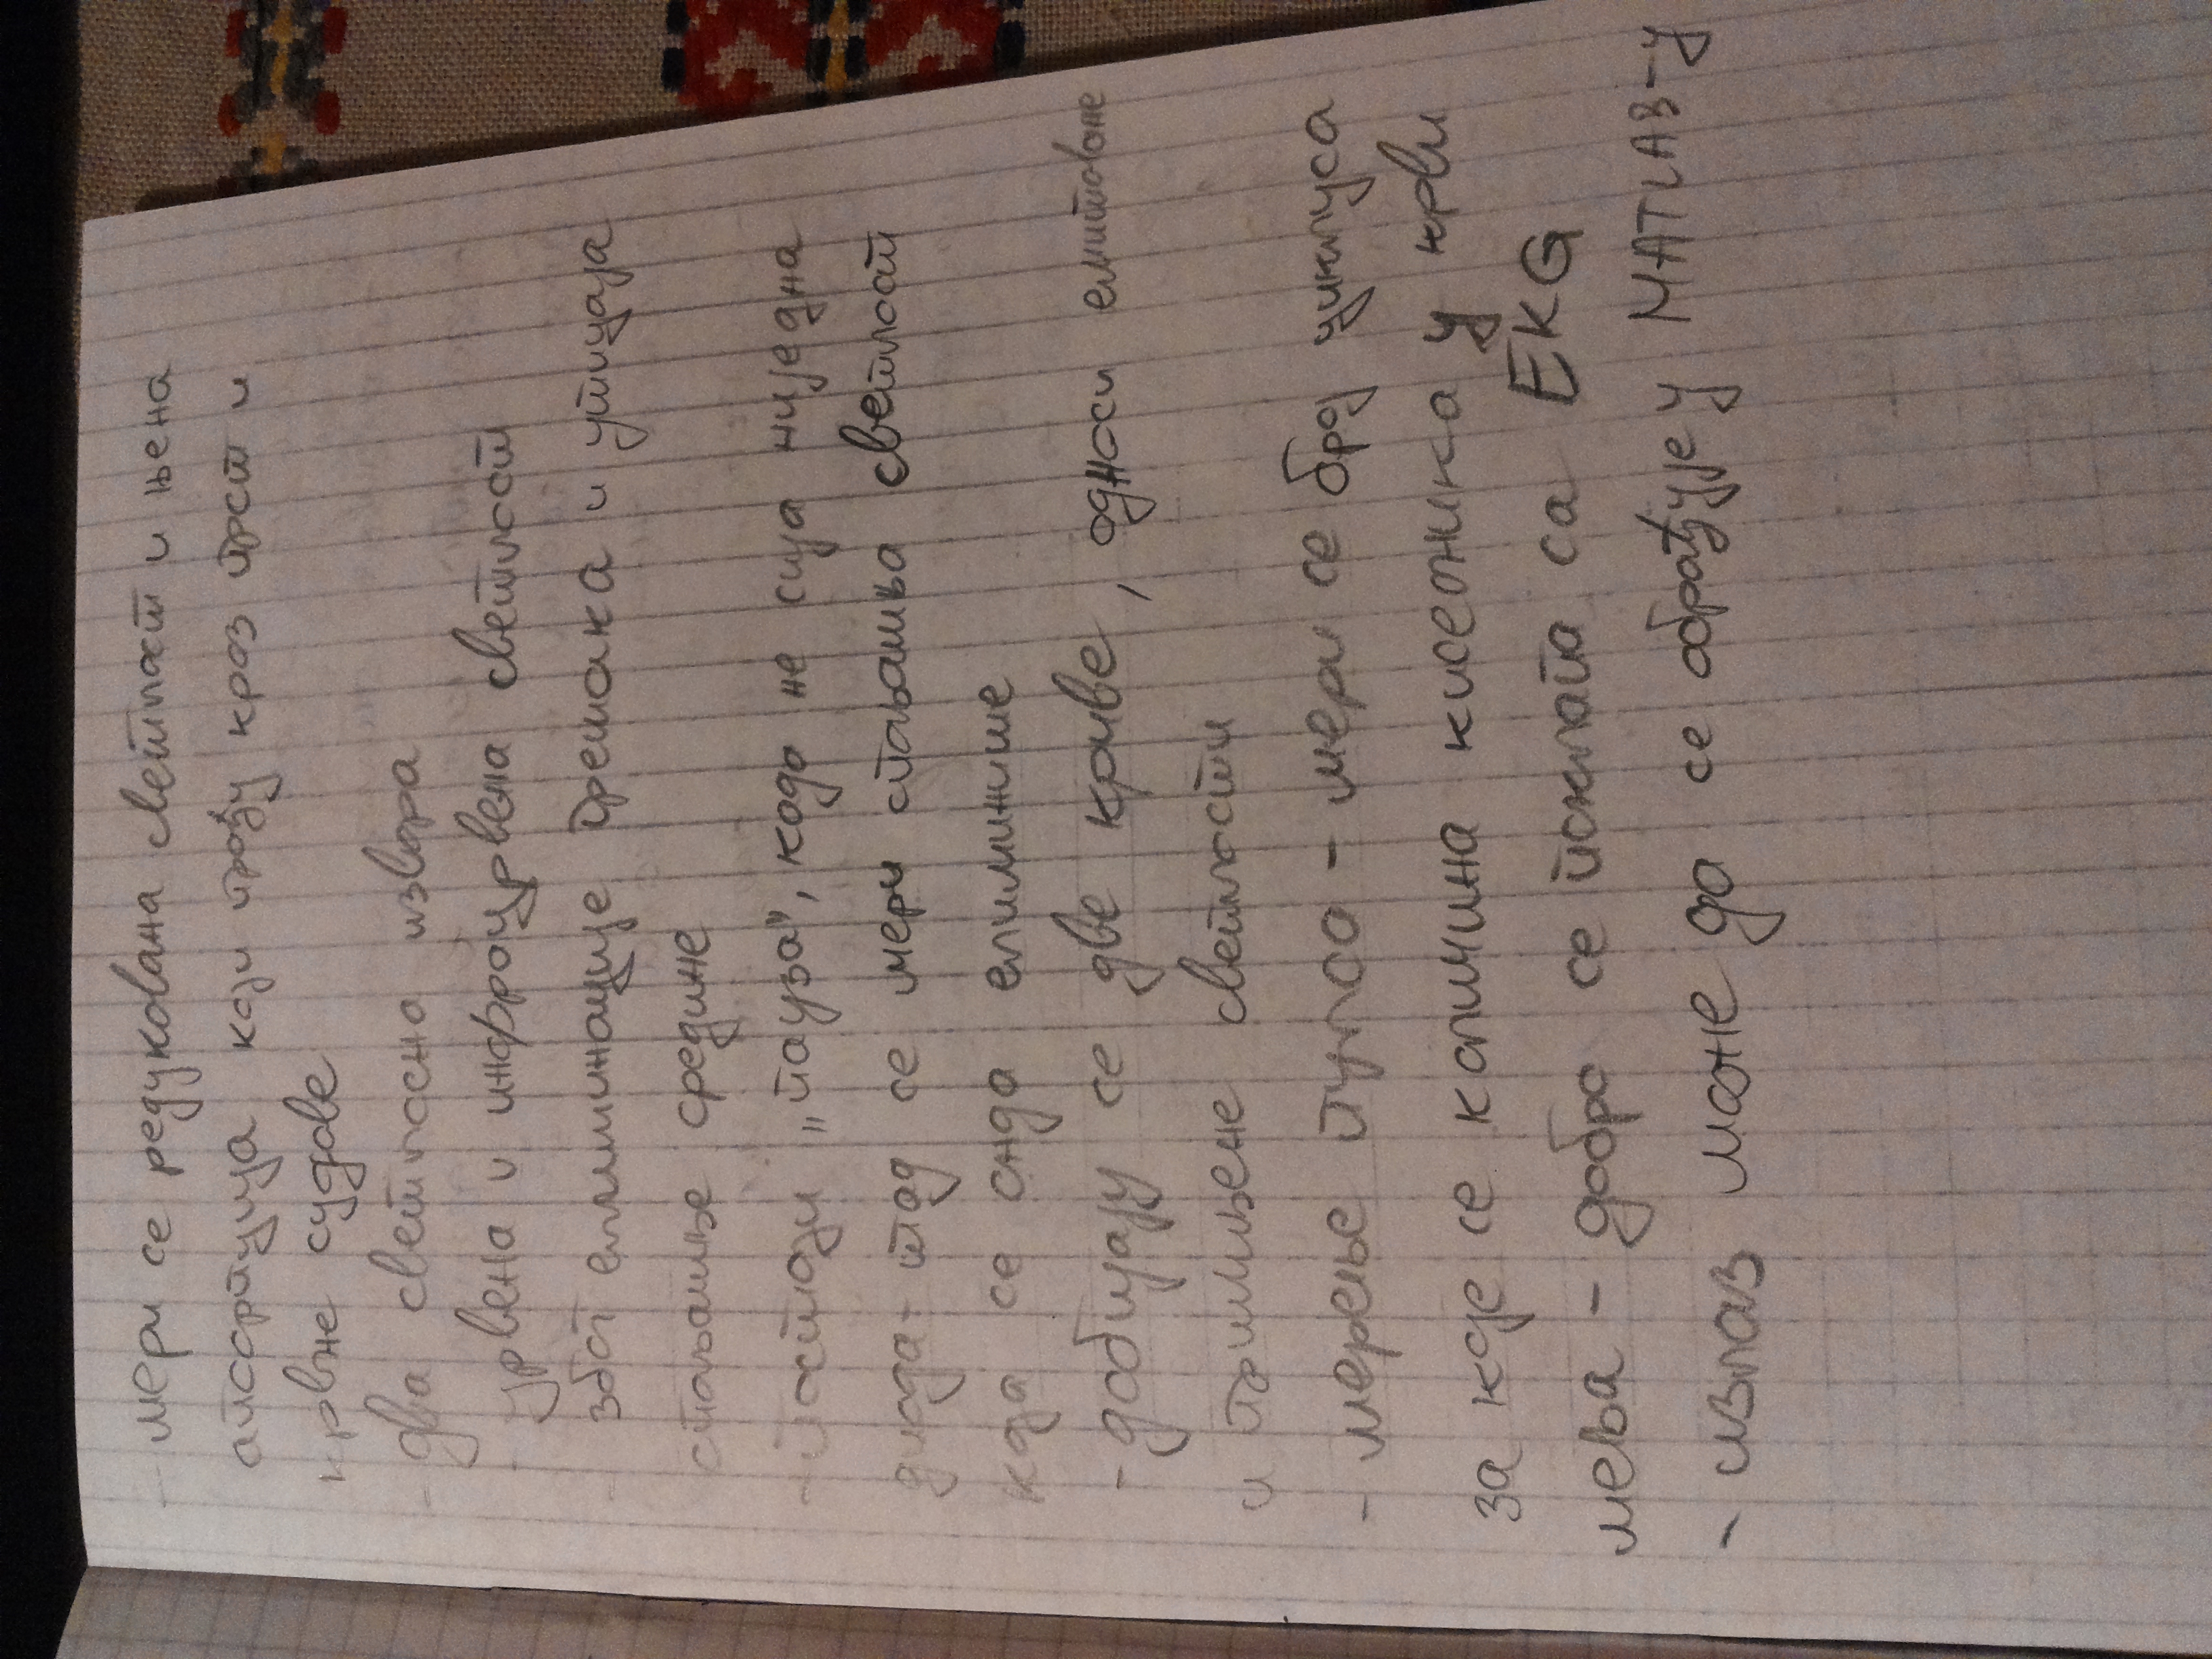 - мери се редукована светлост и њена
апсорпција који прођу кроз прст и
крвне судове
- два светлосна извора
- црвена и инфрацрвена светлост
- због елиминације грешака и утицаја
спољашње средине
- постоји „пауза”, када не сија ниједна
диода - тад се мери спољашња светлост
која се онда елиминише
- добијају се две криве, односи емитоване
и примљене светлости
- мерење пулса - мери се број циклуса
за које се количина кисеоника у крви
мења - добро се поклапа са EKG
- излаз може да се обрађује у MATLAB-у